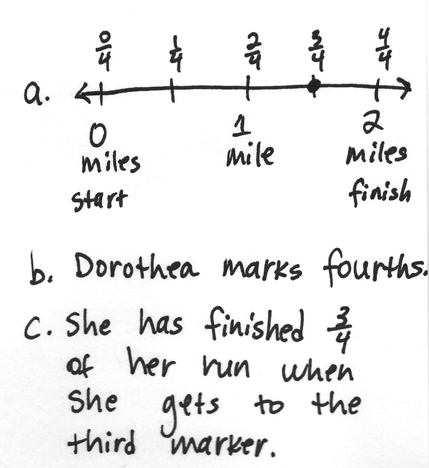 0/4 1/4 2/4 3/4 4/4
a.
0 1 2
miles mile miles
start finish
b. Dorothea marks fourths.
c. She has finished 3/4
of her run when
she gets to the
third marker.